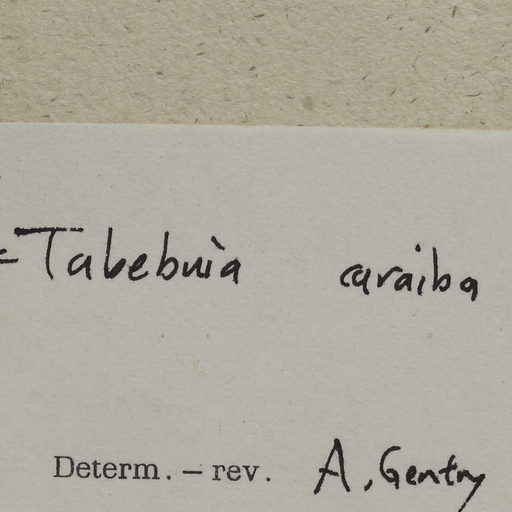 = Tabebuia caraiba
Determ. – rev. A. Gentry